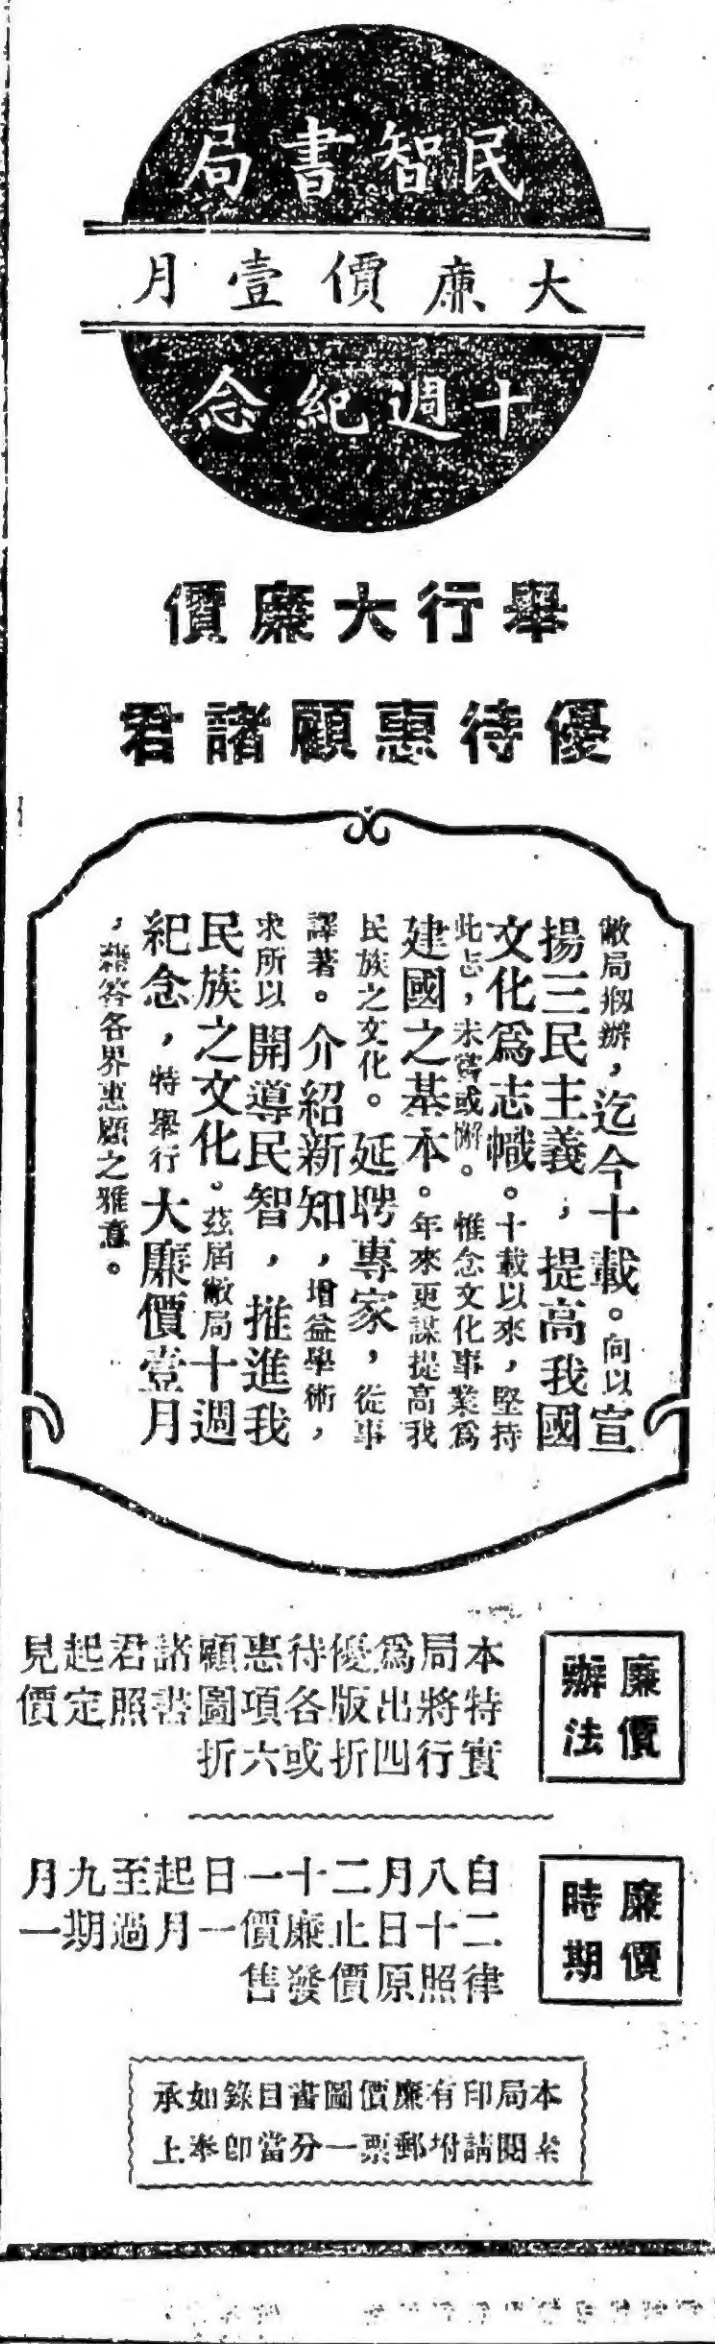 民智書局
大廉價壹月
十週紀念
舉行大廉價
優待惠顧諸君
敝局剏辦，迄今十載。向以宣
揚三民主義，提高我國
文化爲志幟。十載以來，堅持
此志，未嘗或懈。惟念文化事業爲
建國之基本。年來更謀提高我
民族之文化。延聘專家，從事
譯著。介紹新知，增益學術，
求所以開導民智，推進我
民族之文化。茲屆敝局十週
紀念，特舉行大廉價壹月
，藉答各界惠顧之雅意。
廉價
辦法
本局爲優待惠顧諸君起見
特將出版各項圖書照定價
實行四折或六折
廉價
時期
自八月二十一日起至九月
二十日止廉價一月過期一
律照原價發售
本局印有廉價圖書目錄如承
索閱請坿郵票一分當即奉上